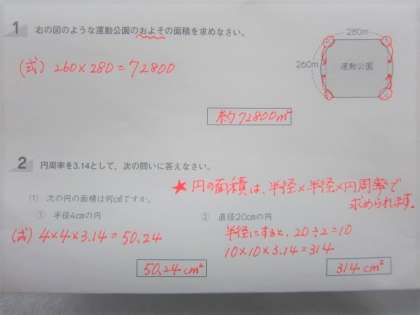 1 右の図のような運動公園のおよその面積を求めなさい。
280m
260m
運動公園
(式) 260×280=72800
約72800m²
2 円周率を3.14として、次の問いに答えなさい。
★円の面積は、半径×半径×円周率で
求められます。
(1) 次の円の面積は何cm²ですか。
① 半径4cmの円
② 直径20cmの円
(式) 4×4×3.14=50.24
半径にすると、20÷2=10
10×10×3.14=314
50.24cm²
314cm²